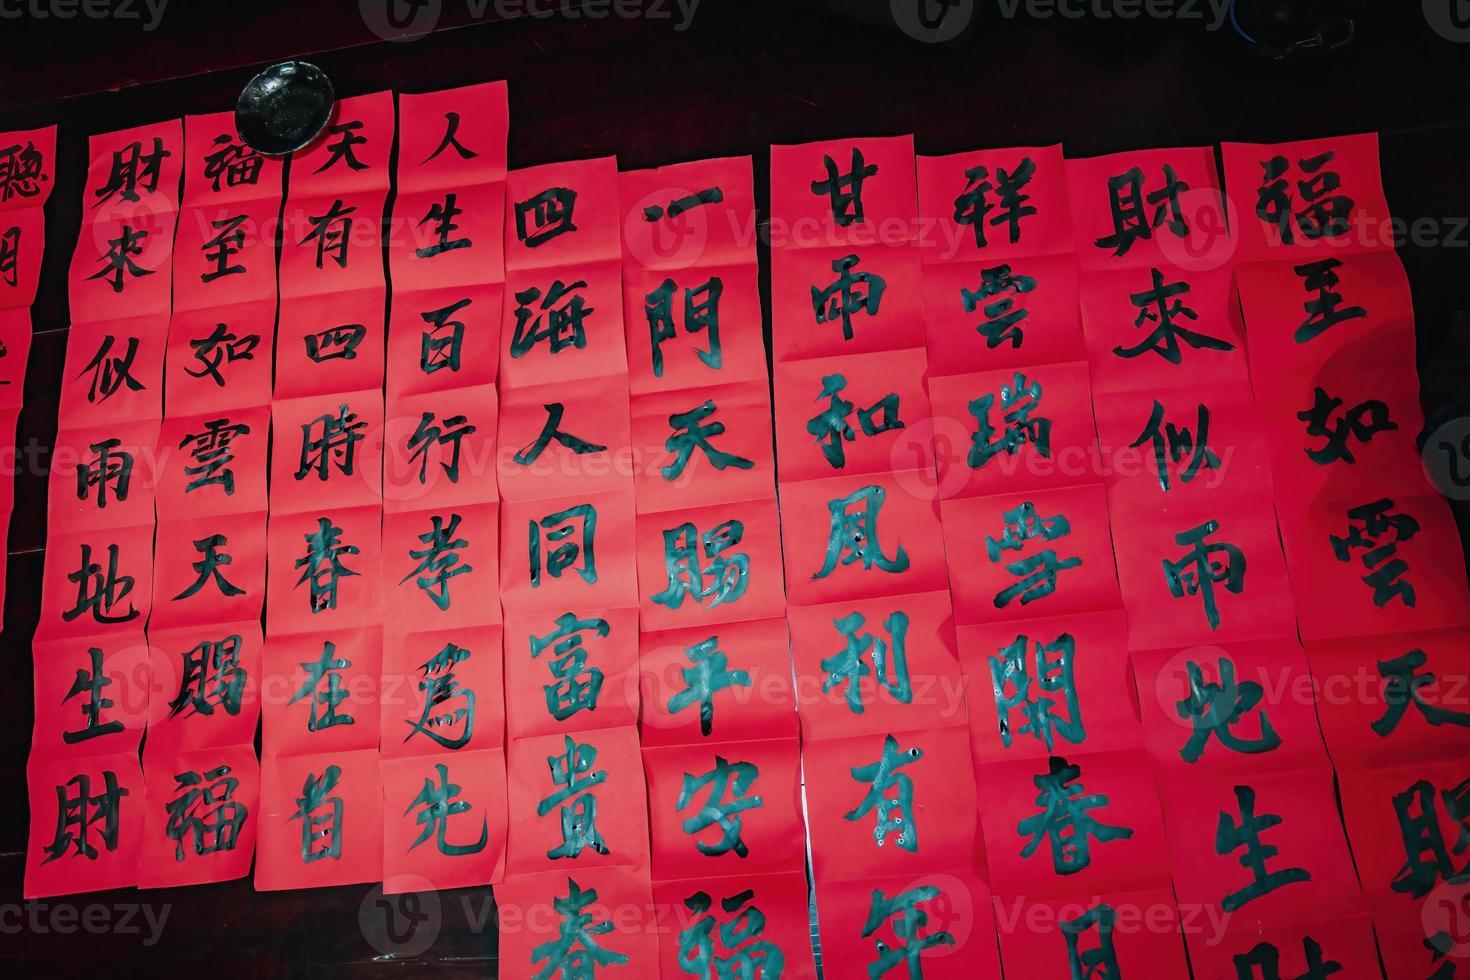 福至如雲天
財來似雨地生財
祥雲瑞雪開春
甘雨和風利有年
一門天賜平安福
四海人同富貴春
人生百行孝爲先
天有四時春在首
福至如雲天賜福
財來似雨地生財
聰明
Vecteezy